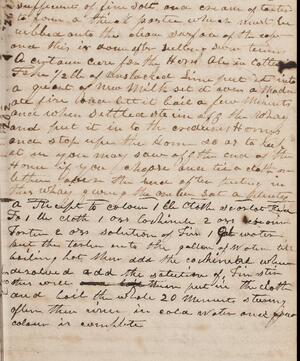 sufficient of fine salt and cream of tartar
to form a thick paste which must be
rubbed into the clean surface of the cop
and this is done after
A certain cure for the Horn Ale in Cattle
Take 1/2 lb of unslacked Lime put it into
a quart of New Milk set it over a Moder
ate fire and let it boil a few Minutes
and when settled strain off the Whey
and put it in to the Horns
and stop up the Horn so as to keep
it in you may saw off the end of the
Horns if you choose and tie a cloth or
lether above the end after putting in
this whey give the
a Receipt to colour 1 lb Cloth scarlet
To 1 lb cloth 1 ozs cochineal 2 ozs cream
Torter 2 ozs solution of Tin 1 Gal water
put the tarter into the gallon of Water
boiling hot then add the cochineal when
desolved add the solution of Tin stir
then put in the Cloth
and boil the whole 20 Minuts stiring
often then rince in cold Water and your
colour is complete